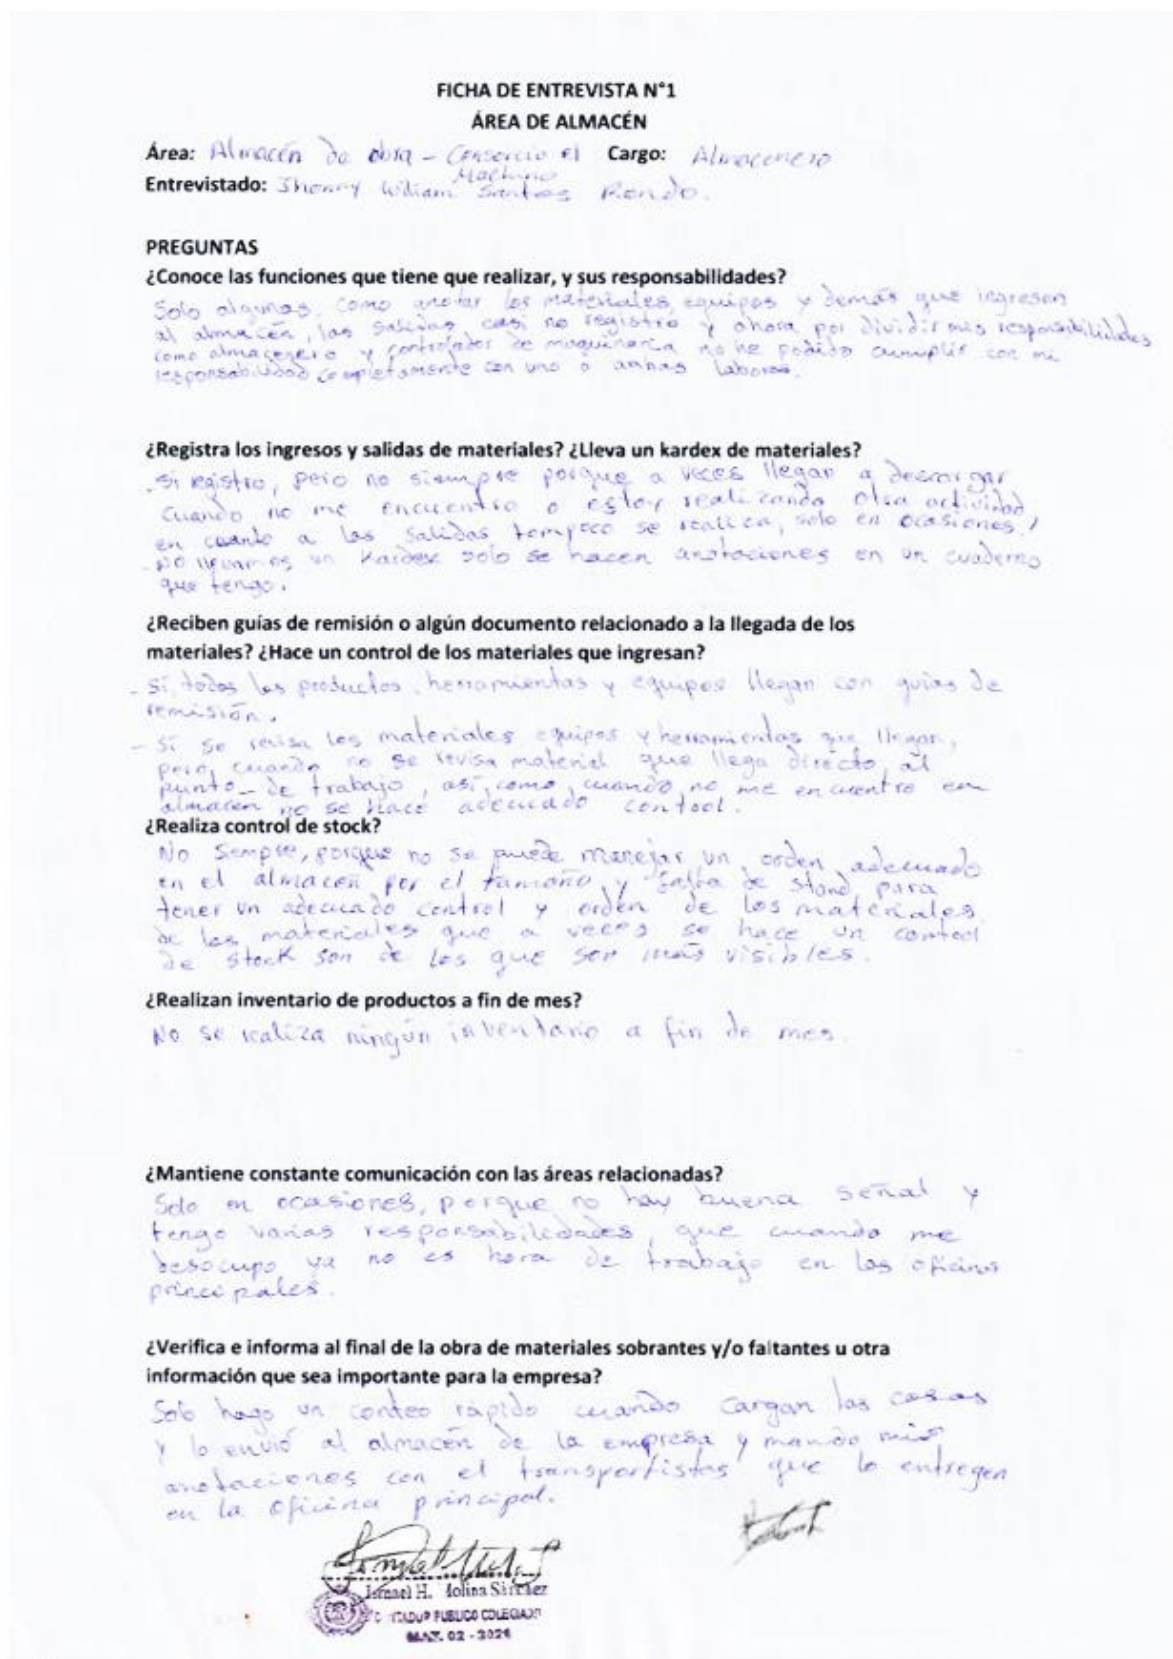 FICHA DE ENTREVISTA N°1
ÁREA DE ALMACÉN
Área: Almacén de obra - Consorcio El Machino Cargo: Almacenero
Entrevistado: Jhonny Wiliam Santos Rondo.
PREGUNTAS
¿Conoce las funciones que tiene que realizar, y sus responsabilidades?
Solo algunas, como anotar los materiales, equipos y demás que ingresen
al almacén, las salidas casi no registro y ahora por dividir mis responsabilidades
como almacenero y controlador de maquinaria no he podido cumplir con mi
responsabilidad completamente con uno o ambas labores.
¿Registra los ingresos y salidas de materiales? ¿Lleva un kardex de materiales?
- Si registro, pero no siempre porque a veces llegan a descargar
cuando no me encuentro o estoy realizando otra actividad,
en cuanto a las salidas tampoco se realiza, solo en ocasiones.
- No llevamos un Kardex solo se hacen anotaciones en un cuaderno
que tengo.
¿Reciben guías de remisión o algún documento relacionado a la llegada de los
materiales? ¿Hace un control de los materiales que ingresan?
- Si, todos los productos, herramientas y equipos llegan con guías de
remisión.
- Si se revisa los materiales equipos y herramientas que llegan,
pero cuando no se revisa material que llega directo al
punto de trabajo, así como cuando no me encuentro en
almacén no se hace adecuado control.
¿Realiza control de stock?
No Siempre, porque no se puede manejar un orden adecuado
en el almacen por el tamaño y falta de stand para
tener un adecuado control y orden de los materiales.
de los materiales que a veces se hace un control
de stock son de los que son más visibles.
¿Realizan inventario de productos a fin de mes?
No se realiza ningún inventario a fin de mes.
¿Mantiene constante comunicación con las áreas relacionadas?
Solo en ocasiones, porque no hay buena señal y
tengo varias responsabilidades, que cuando me
desocupo ya no es hora de trabajo en las oficinas
principales.
¿Verifica e informa al final de la obra de materiales sobrantes y/o faltantes u otra
información que sea importante para la empresa?
Solo hago un conteo rápido cuando cargan las cosas
y lo envió al almacén de la empresa y mando mis
anotaciones con el transportistas que lo entregen
en la oficina principal.
Ismael H. Molina Sánchez
CONTADOR PUBLICO COLEGIADO
MAT. 02 - 3021